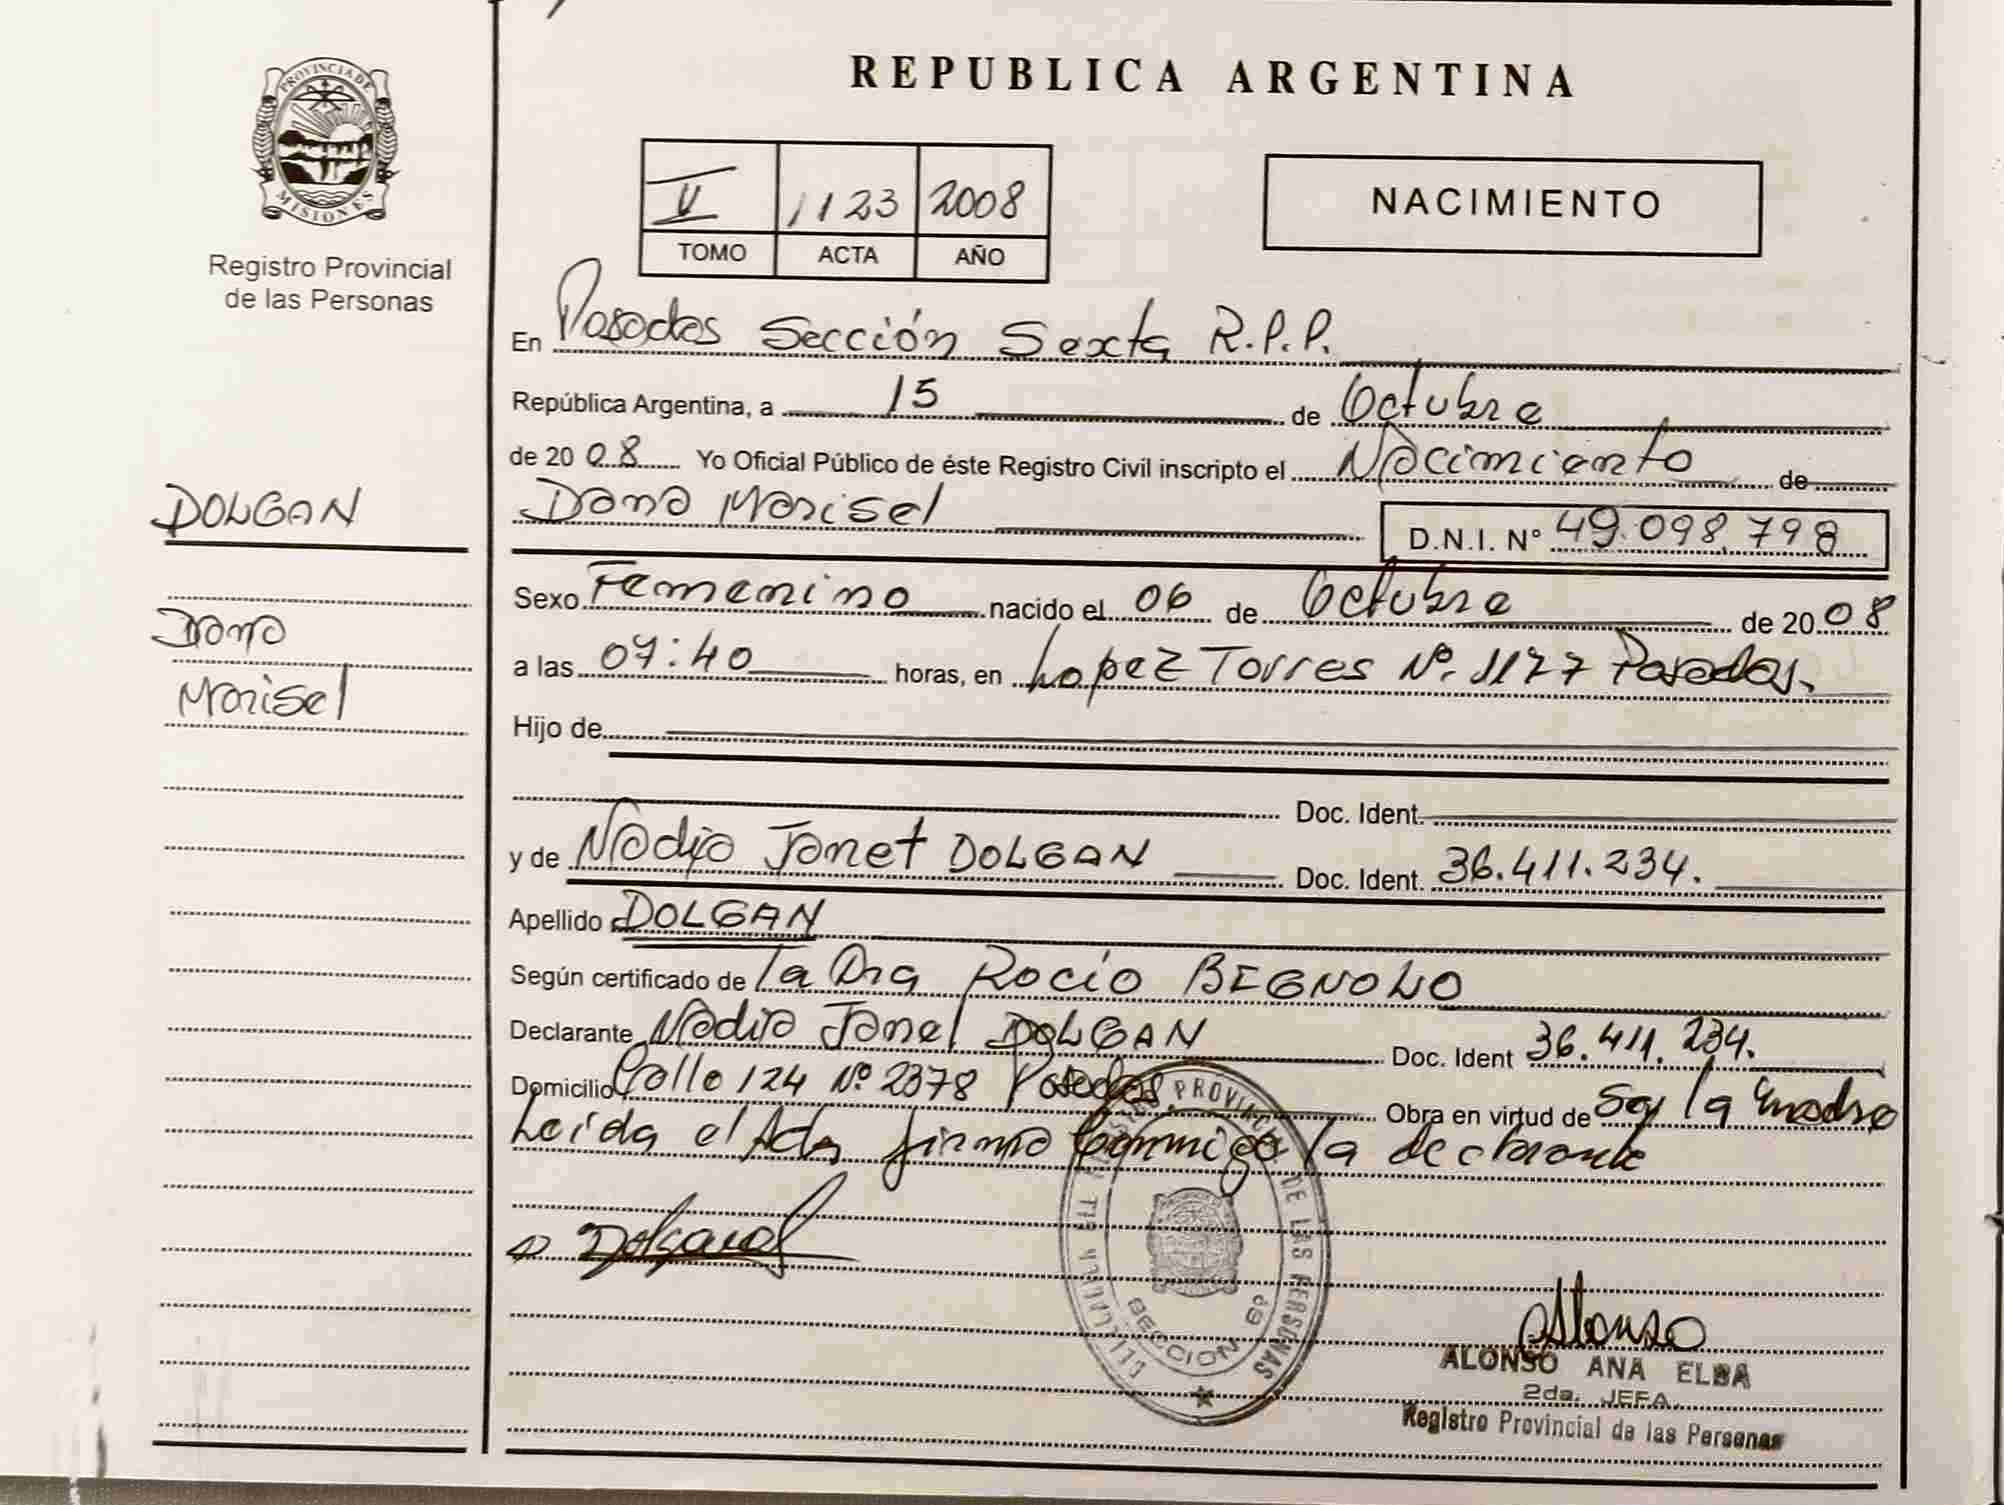 PROVINCIA DE
MISIONES
Registro Provincial
de las Personas
DOLGAN
Dana
Marisel
REPUBLICA ARGENTINA
V 1123 2008
TOMO ACTA AÑO
NACIMIENTO
En Posadas Sección Sexta R.P.P.
República Argentina, a 15 de Octubre
de 2008 Yo Oficial Público de éste Registro Civil inscripto el Nacimiento de
Dana Marisel D.N.I. Nº 49.098.798
Sexo Femenino nacido el 06 de Octubre de 2008
a las 07:40 horas, en Lopez Torres Nº. 1177 Posadas.
Hijo de
Doc. Ident.
y de Nadia Janet DOLGAN Doc. Ident. 36.411.234.
Apellido DOLGAN
Según certificado de la Dra Rocío BEGNOLO
Declarante Nadia Janet DOLGAN Doc. Ident 36.411.234.
Domicilio Calle 124 Nº 2378 Posadas Obra en virtud de Ser la madre
Leída el Acta firma conmigo la declarante
PROVINCIAL DE LAS PERSONAS
SECCION 6ª
ALONSO ANA ELBA
2da. JEFA
Registro Provincial de las Personas